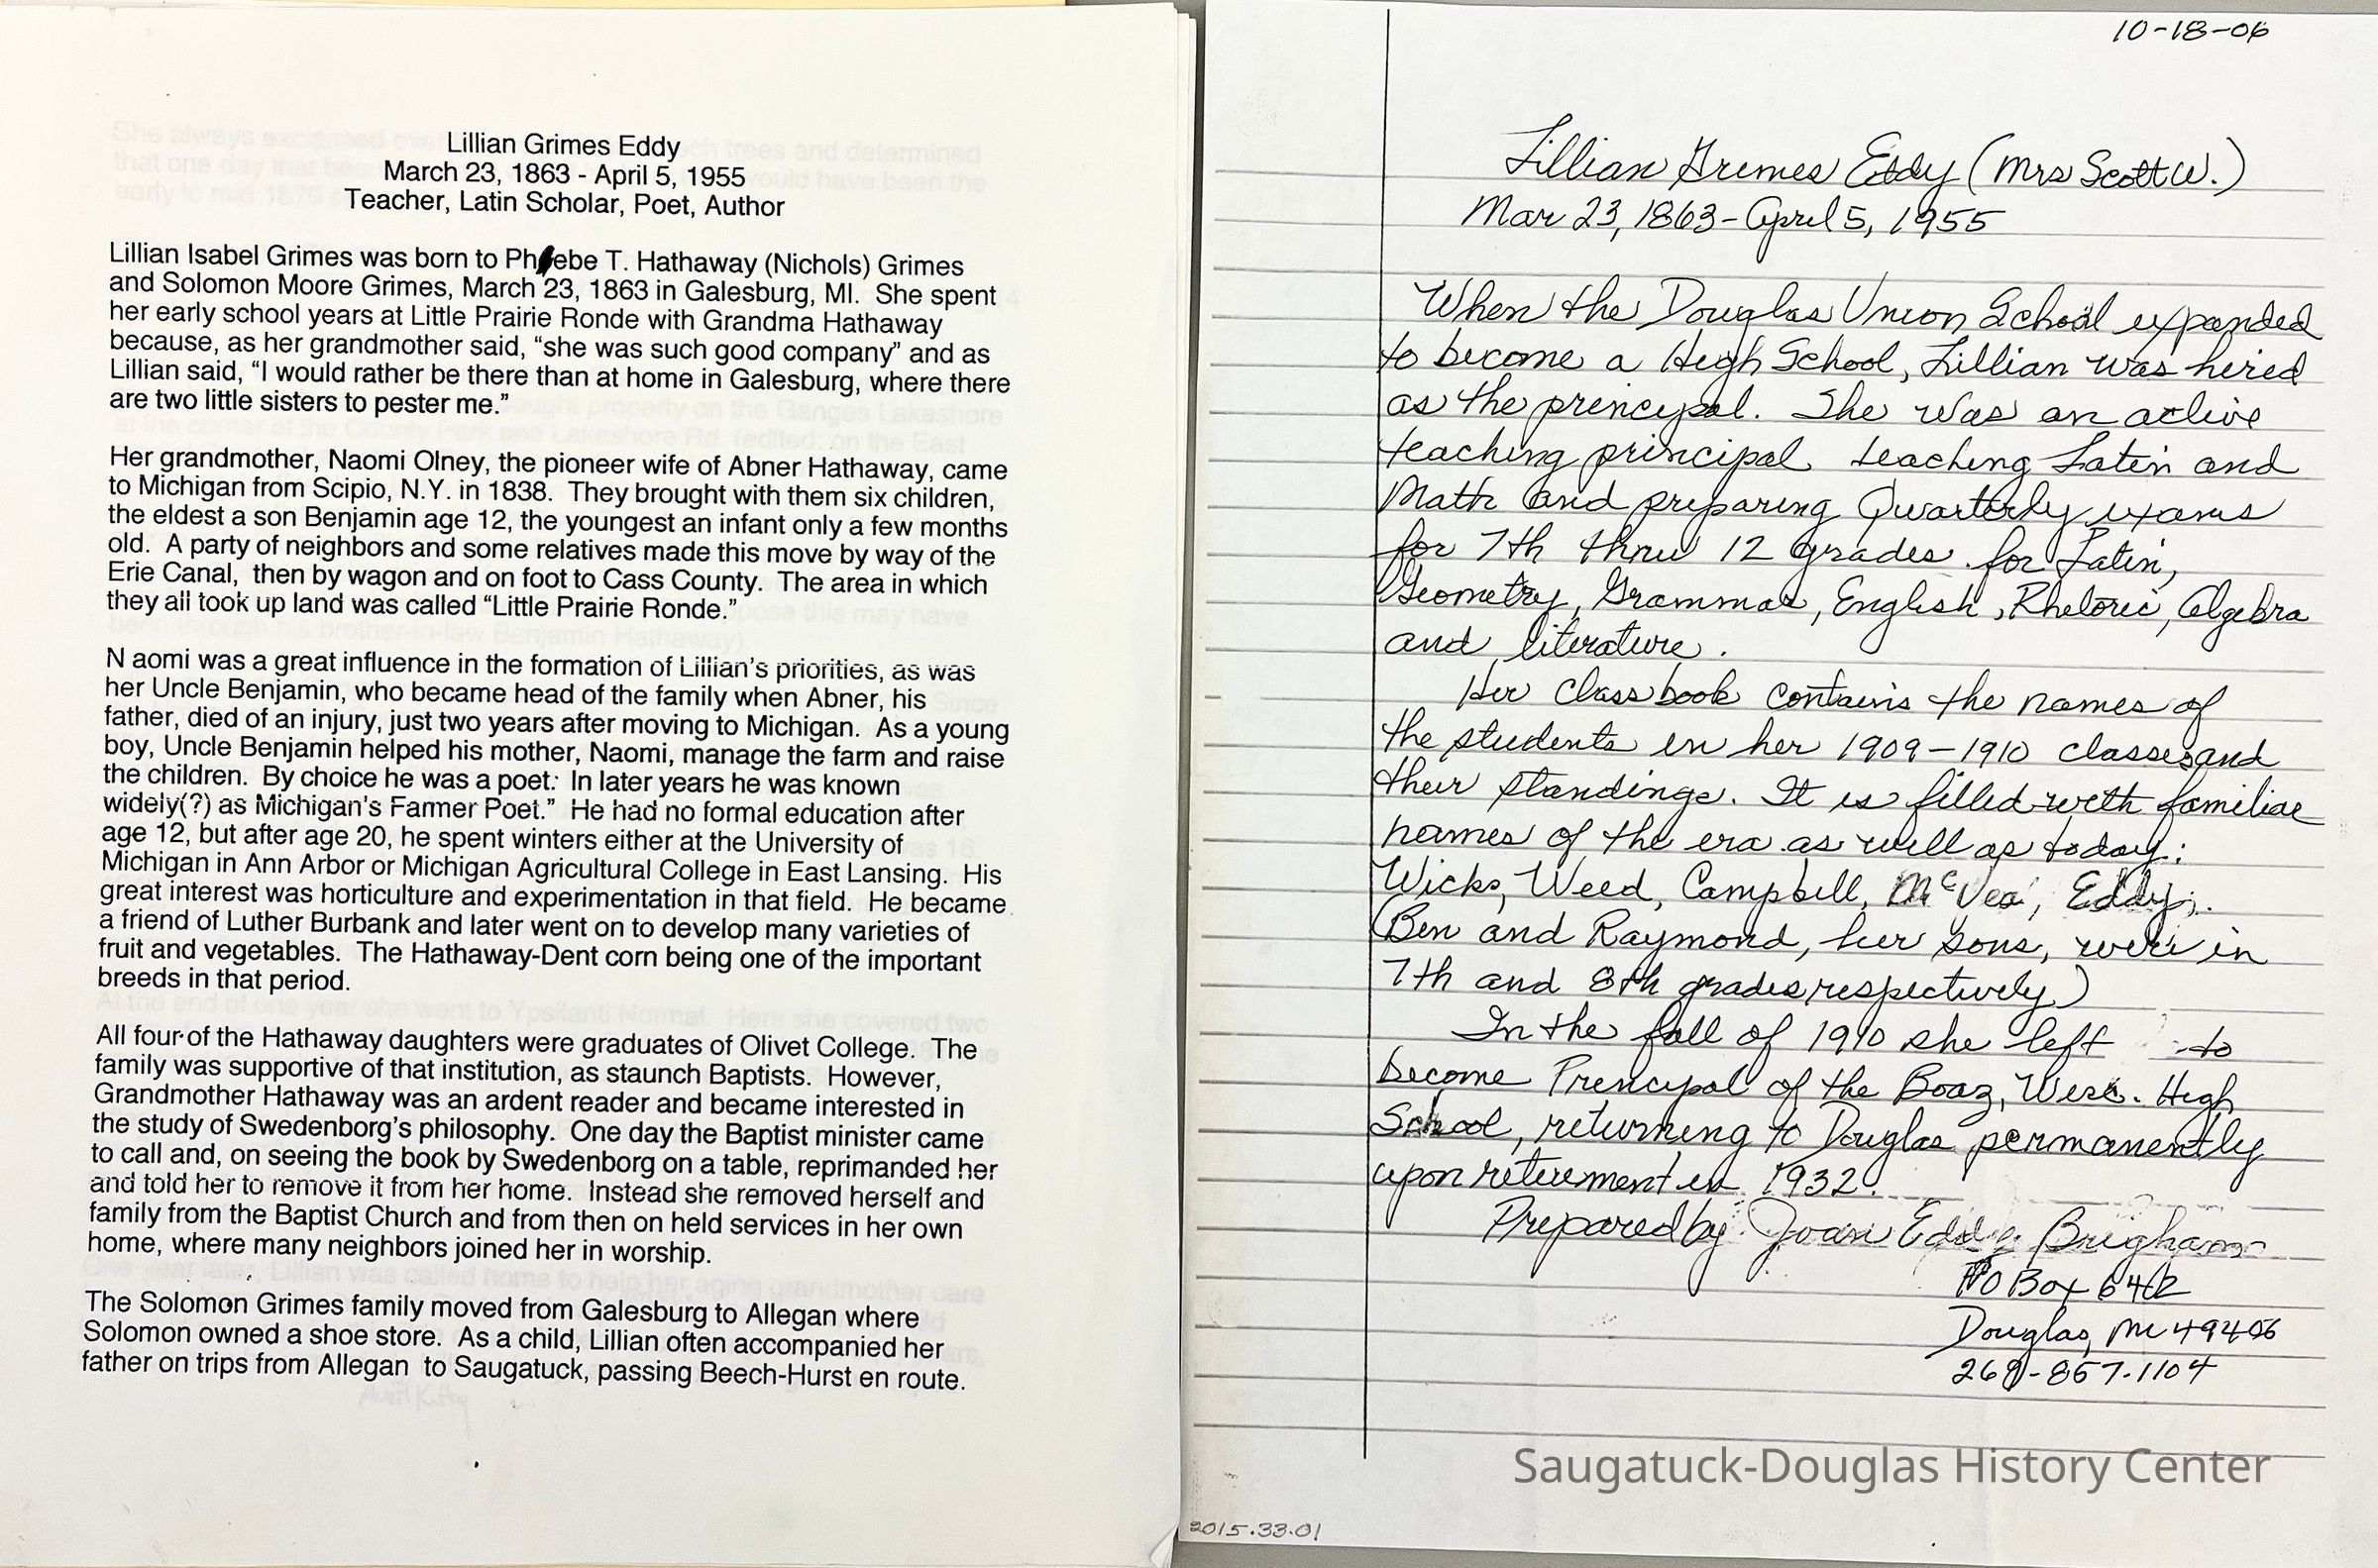 Lillian Grimes Eddy
March 23, 1863 - April 5, 1955
Teacher, Latin Scholar, Poet, Author
Lillian Isabel Grimes was born to Phoebe T. Hathaway (Nichols) Grimes
and Solomon Moore Grimes, March 23, 1863 in Galesburg, MI. She spent
her early school years at Little Prairie Ronde with Grandma Hathaway
because, as her grandmother said, “she was such good company” and as
Lillian said, “I would rather be there than at home in Galesburg, where there
are two little sisters to pester me.”
Her grandmother, Naomi Olney, the pioneer wife of Abner Hathaway, came
to Michigan from Scipio, N.Y. in 1838. They brought with them six children,
the eldest a son Benjamin age 12, the youngest an infant only a few months
old. A party of neighbors and some relatives made this move by way of the
Erie Canal, then by wagon and on foot to Cass County. The area in which
they all took up land was called “Little Prairie Ronde.”
N aomi was a great influence in the formation of Lillian’s priorities, as was
her Uncle Benjamin, who became head of the family when Abner, his
father, died of an injury, just two years after moving to Michigan. As a young
boy, Uncle Benjamin helped his mother, Naomi, manage the farm and raise
the children. By choice he was a poet: In later years he was known
widely(?) as Michigan's Farmer Poet.” He had no formal education after
age 12, but after age 20, he spent winters either at the University of
Michigan in Ann Arbor or Michigan Agricultural College in East Lansing. His
great interest was horticulture and experimentation in that field. He became
a friend of Luther Burbank and later went on to develop many varieties of
fruit and vegetables. The Hathaway-Dent corn being one of the important
breeds in that period.
All four of the Hathaway daughters were graduates of Olivet College. The
family was supportive of that institution, as staunch Baptists. However,
Grandmother Hathaway was an ardent reader and became interested in
the study of Swedenborg’s philosophy. One day the Baptist minister came
to call and, on seeing the book by Swedenborg on a table, reprimanded her
and told her to remove it from her home. Instead she removed herself and
family from the Baptist Church and from then on held services in her own
home, where many neighbors joined her in worship.
The Solomon Grimes family moved from Galesburg to Allegan where
Solomon owned a shoe store. As a child, Lillian often accompanied her
father on trips from Allegan to Saugatuck, passing Beech-Hurst en route.
10-18-06
Lillian Grimes Eddy (Mrs Scott W.)
Mar 23, 1863 - April 5, 1955
When the Douglas Union School expanded
to become a High School, Lillian was hired
as the principal. She was an active
teaching principal teaching Latin and
Math and preparing Quarterly exams
for 7th thru 12 grades for Latin,
Geometry, Grammar, English, Rhetoric, Algebra
and literature.
Her class book contains the names of
the students in her 1909-1910 classes and
their standings. It is filled with familiar
names of the era as well as today:
Wicks, Weed, Campbell, McVea, Eddy.
(Ben and Raymond, her sons, were in
7th and 8th grades, respectively)
In the fall of 1910 she left to
become Principal of the Boaz, Wisc. High
School, returning to Douglas permanently
upon retirement in 1932.
Prepared by Joan Eddy Brigham
PO Box 6402
Douglas, MI 49406
269-857-1104
Saugatuck-Douglas History Center
2015.33.01